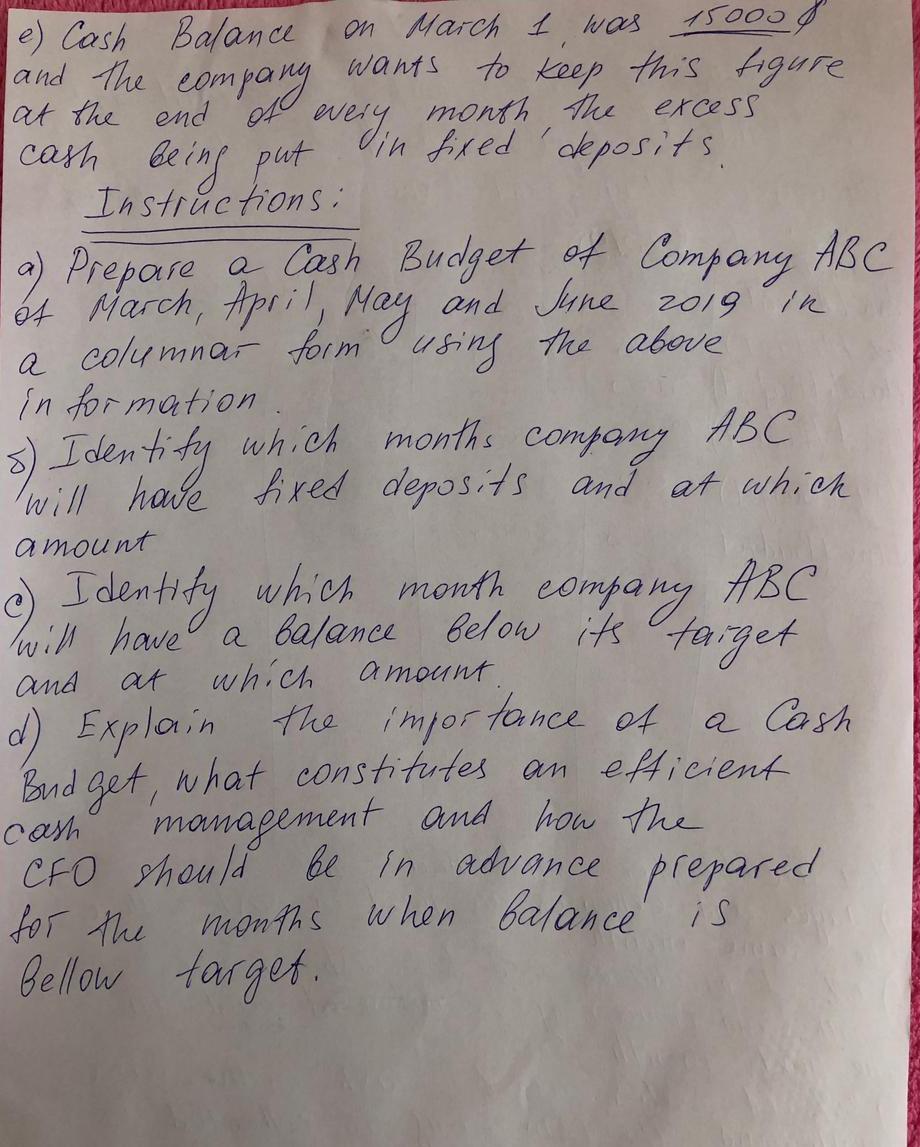 e) Cash Balance on March 1, was 15000 $
and the company wants to keep this figure
at the end of every month, the excess
cash being put in fixed deposits.
Instructions:
a) Prepare a Cash Budget of Company ABC
of March, April, May and June 2019 in
a columnar form using the above
information.
б) Identify which months company ABC
will have fixed deposits and at which
amount
c) Identify which month company ABC
will have a balance below its target
and at which amount.
d) Explain the importance of a Cash
Budget, what constitutes an efficient
cash management and how the
CFO should be in advance prepared
for the months when balance is
bellow target.